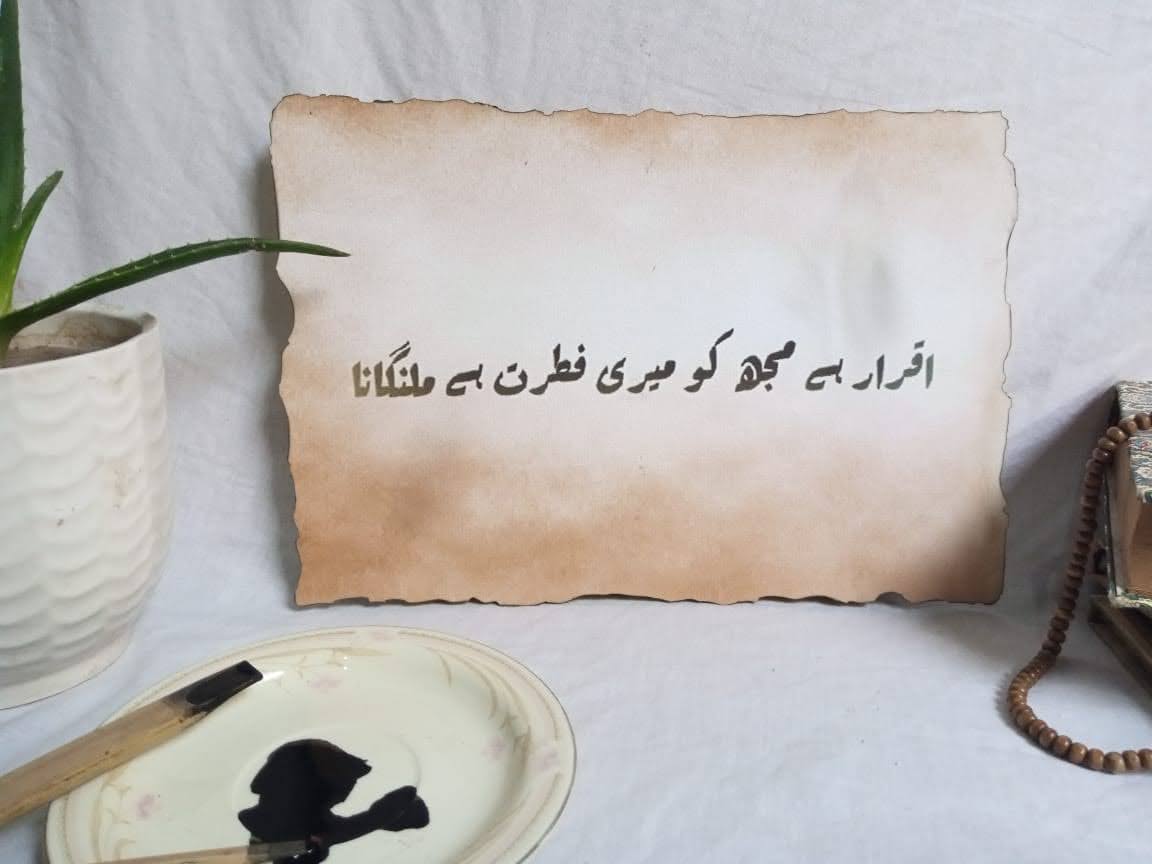 اقرار ہے مجھ کو میری فطرت ہے ملنگانا